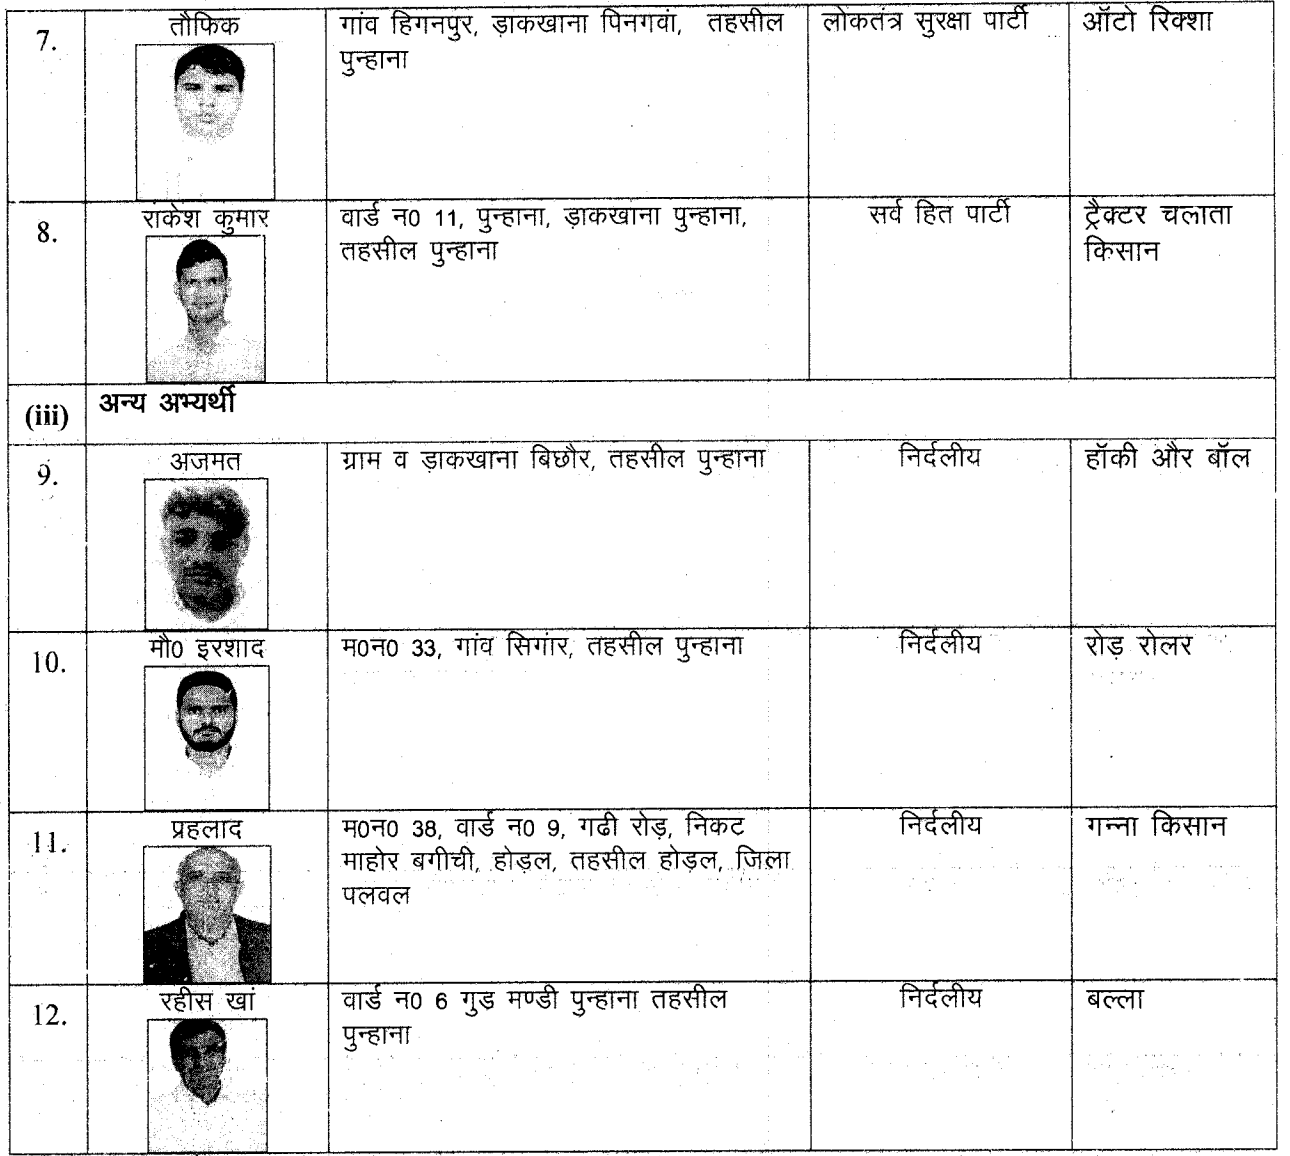 7.
तौफिक
गांव हिगनपुर, ड़ाकखाना पिनगवां, तहसील
पुन्हाना
लोकतंत्र सुरक्षा पार्टी
ऑटो रिक्शा
8.
राकेश कुमार
वार्ड न0 11, पुन्हाना, ड़ाकखाना पुन्हाना,
तहसील पुन्हाना
सर्व हित पार्टी
ट्रैक्टर चलाता
किसान
(iii)
अन्य अभ्यर्थी
9.
अजमत
ग्राम व ड़ाकखाना बिछौर, तहसील पुन्हाना
निर्दलीय
हॉकी और बॉल
10.
मौ0 इरशाद
म0न0 33, गांव सिगांर, तहसील पुन्हाना
निर्दलीय
रोड़ रोलर
11.
प्रहलाद
म0न0 38, वार्ड न0 9, गढी रोड़, निकट
माहोर बगीची, होड़ल, तहसील होड़ल, जिला
पलवल
निर्दलीय
गन्ना किसान
12.
रहीस खां
वार्ड न0 6 गुड मण्डी पुन्हाना तहसील
पुन्हाना
निर्दलीय
बल्ला